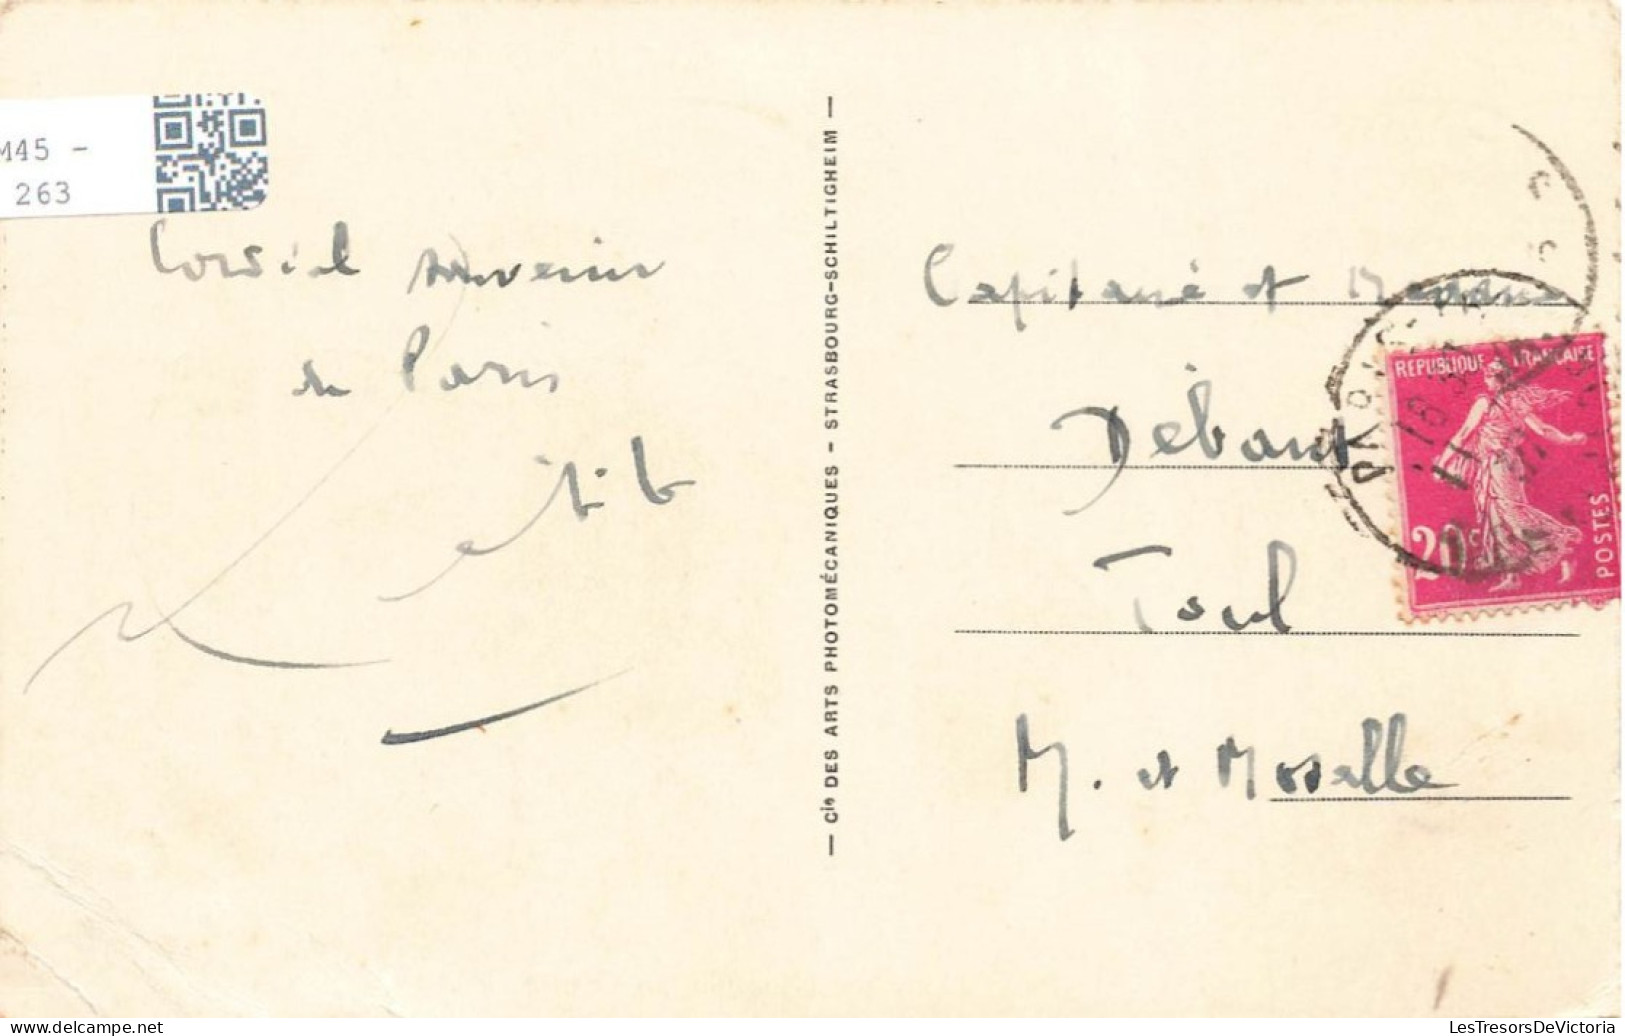 M45 -
263
Cordial souvenir
de Paris
— Cie DES ARTS PHOTOMÉCANIQUES - STRASBOURG-SCHILTIGHEIM —
Capitaine et Madame
Toul
M. et Moselle
REPUBLIQUE FRANCAISE
20c
POSTES
LesTresorsDeVictoria
www.delcampe.net